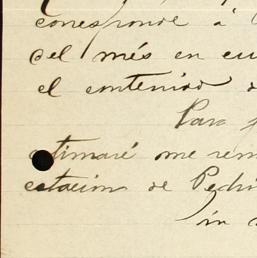 corresponde á
del més en cu
el contenido d
Para
estimaré me rem
estación de Pedri
sin